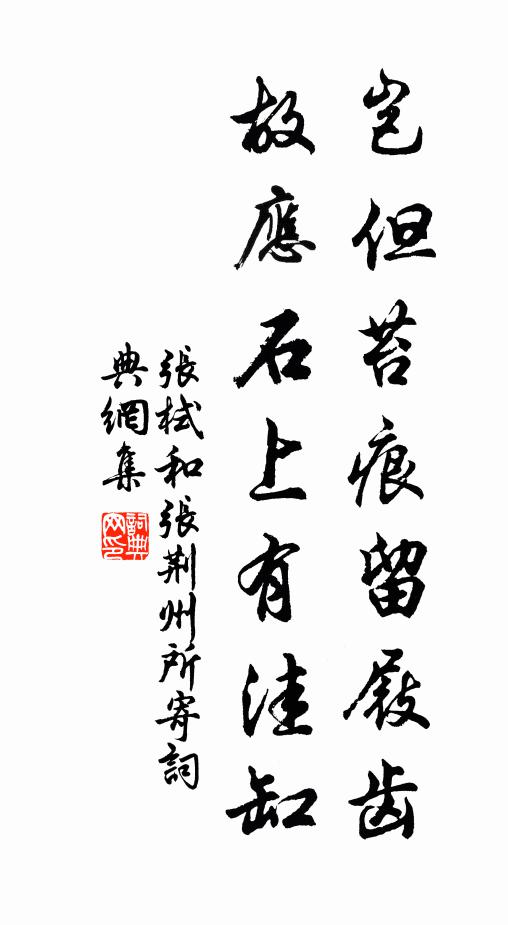 岂但苔痕留屐齿
故應石上有洼缸
張栻和張荆州所寄詞
典網集
詞典網印